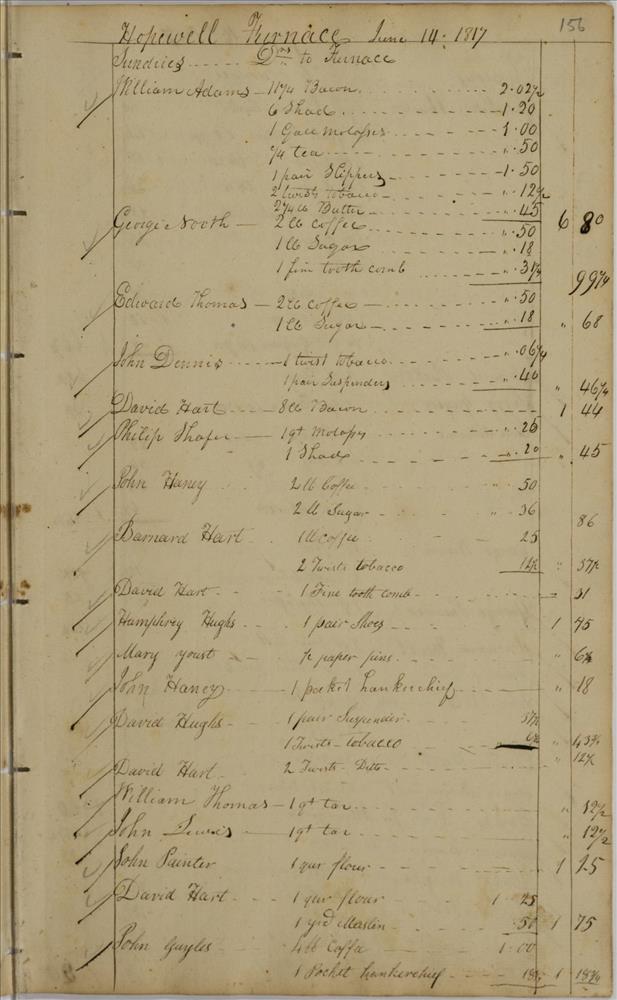 156
Hopewell Furnace June 14. 1817
Sundries Drs to Furnace
William Adams 11 1/4 Bacon 2.02 1/2
6 Shad 1.20
1 Gall molasses 1.00
1/4 tea .50
1 pair Slippers 1.50
2 twists tobacco .12 1/2
2 1/4 lb Butter .45 6 80
George North 2 lb Coffee .50
1 lb Sugar .18
1 fine tooth comb .31 1/4 99 1/4
Edward Thomas 2 lb Coffee .50
1 lb Sugar .18 " 68
John Dennis 1 twist tobacco .06 1/4
1 pair Suspenders .40 " 46 1/4
David Hart 8 lb Bacon 1 44
Philip Shafer 1 qt Molasses .25
1 Shad .20 " 45
John Haney 2 lb Coffee 50
2 lb Sugar " 36 86
Barnard Hart 1 lb Coffee 25
2 Twists tobacco 12 1/2 " 37 1/2
David Hart 1 Fine tooth comb 31
Humphrey Hughs 1 pair Shoes 1 45
Mary Youst 1/2 paper pins " 6 1/4
John Haney 1 pocket hankerchief " 18
David Hughs 1 pair Suspender 37 1/2
1 Twists tobacco 6 1/4 " 43 3/4
David Hart 2 Twists Ditto " 12 1/2
William Thomas 1 qt tar " 12 1/2
John Lewis 1 qt tar " 12 1/2
John Painter 1 qur flour 1 25
David Hart 1 qur flour 1 25
1 yrd Muslin .50 1 75
John Gayles 4 lb Coffe 1.00
1 Pocket hankerchief 18 3/4 1 18 3/4